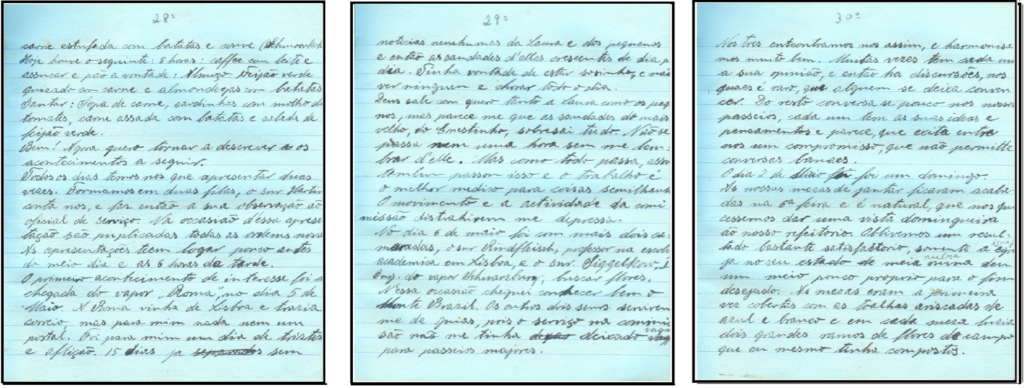 28ª
carne estufada com batatas e couve
Hoje houve o seguinte: 8 horas: caffee com leite e
assucar e pão a vontade: Almoço. Feijão verde
guizado com carne e almondegas com batatas
Jantar: Sopa de carne, sardinhas com molho de
tomates, carne assada com batatas e salada de
feijão verde.
Bem! Agora quero tornar a descrever os
acontecimentos a seguir.
Todos os dias temos nos que apresentar duas
vezes. Formamos em duas filas, o snr.
conta nos, e faz então a sua observação ao
oficial de serviço. Na occasião d'essa apresen
tação são publicadas todas as ordens novas
As apresentações teem logar pouco antes
do meio dia e as 6 horas da tarde.
O primeiro acontecimento de interesse foi a
chegada do vapor "Roma", no dia 5 de
Maio. A Roma vinha de Lisboa e trazia
correio, mas para mim nada nem um
portal. Foi para mim um dia de tristeza
e aflição, 15 dias ja sem
29ª
noticias nenhumas da Laura e dos pequenos
e então as saudades d'elles crescentes de dia p.
dia. Tinha vontade de estar sozinho, e não
ver ninguem e chorar todo o dia.
Deus sabe com quero tanto a Laura como os peq
nos, mas parece me que as saudades do mais
velho, do Ernestinho, sobresai tudo. Não se
passa nem uma hora sem me lem
brar d'elle. Mas como todo passa, assim
tambem passou isso e o trabalho é
o melhor medico para coisas semilhantes
O movimento e a actividade da comi
missão distrahirem me depressa.
No dia 6 de maio foi com mais dois ca
maradas, o snr Rindfleisch, professor na escola
academica em Lisboa, e o snr. Siggelkow, 1
Eng. do vapor Schwarzburg, buscar flores.
Nessa occasião cheguei conhecer bem o
Monte Brasil. Os outros dois snres serviram
me de guias, pois o serviço na commis
são não me tinha deixado
para passeios majores.
30ª
Nos tres entcontramos nos assim, e harmonisa
mos muito bem. Muitas vezes tem cada um
a sua opinião, e então ha discursões, nos
quaes é raro, que alguem se deixa conven
cer. Do resto conversa se pouco nos nossos
passeios, cada um tem as suas ideas e
pensamentos e parece, que exita entre
nos um compromisso, que não permitte
conversas banaes.
O dia 2 de Maio foi um domingo.
As nossas mezas de jantar ficaram acaba
das na 6ª feira e é natural, que nos qui
cessemos dar uma vista domingueira
ao nosso refeitorio. Obtivemos um resul
tado bastante satisfactorio, somente a
ja no seu estado de meia ruina dava
um meio pouco proprio para o fim
desejado. As mezas eram a primeira
vez cobertas com as toalhas riscadas de
azul e branco e em cada meza havia
dois grandes ramos de flores de campo
que eu mesmo tinha compostos.